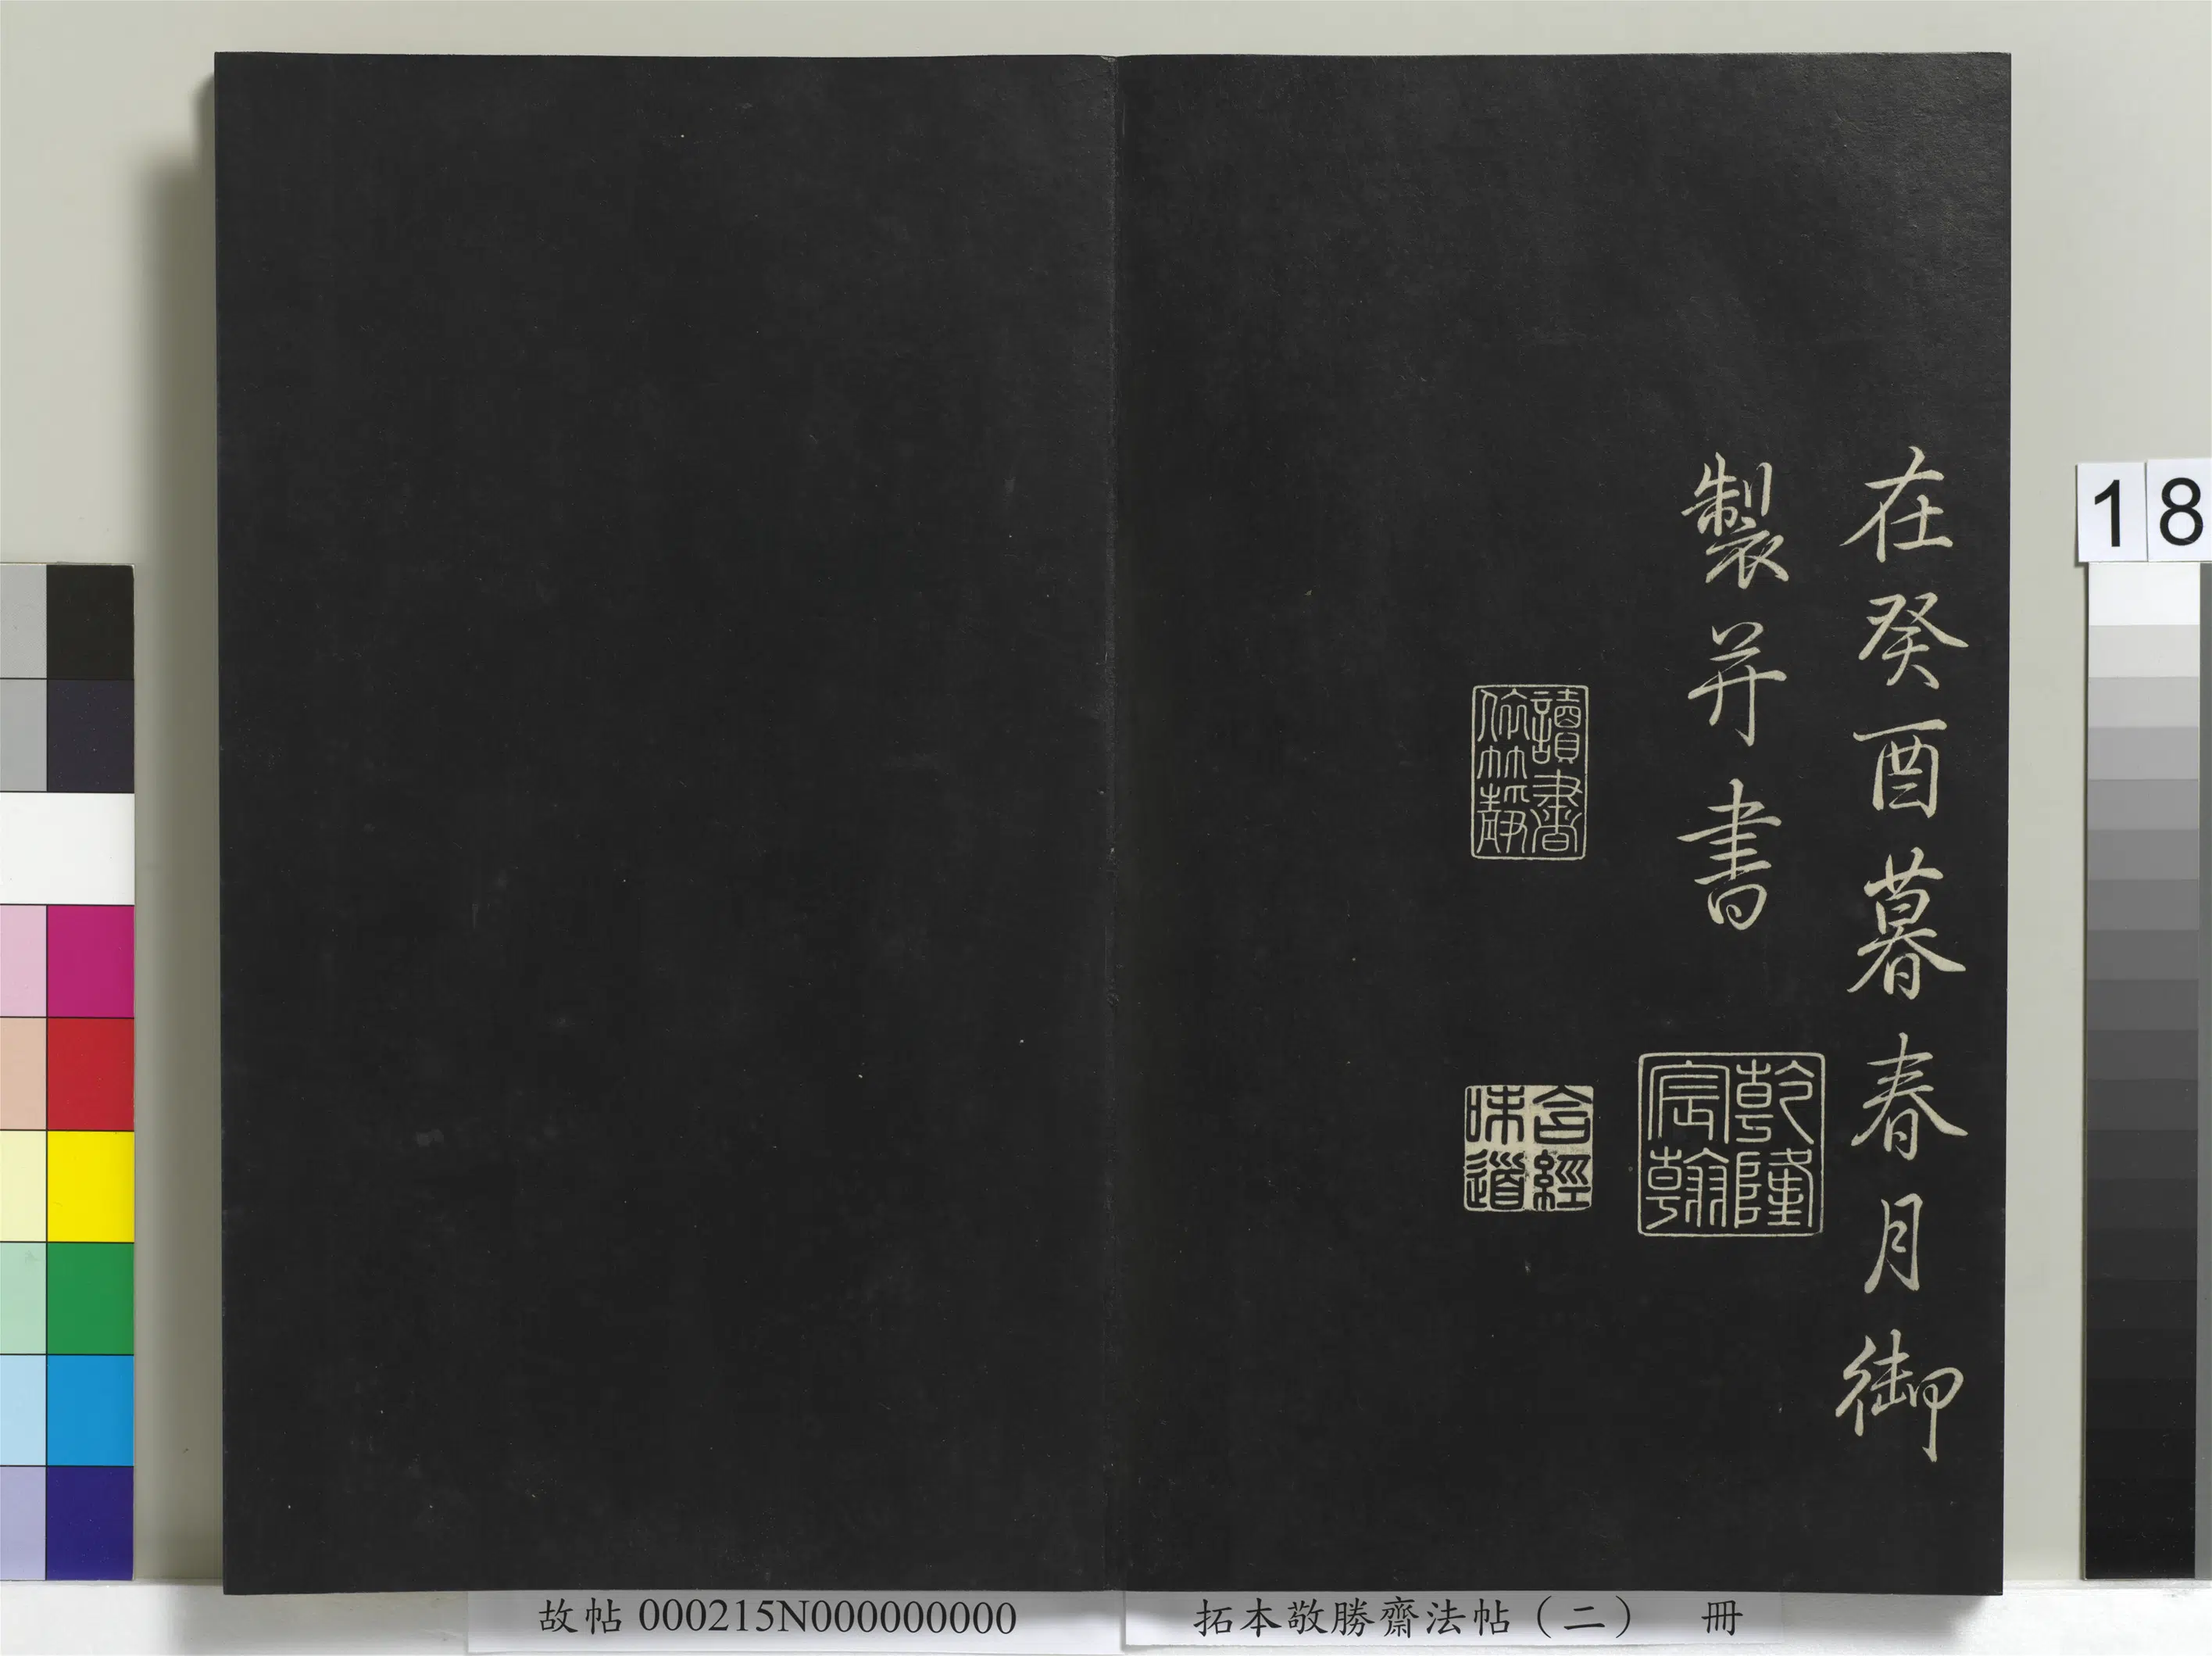 在癸酉暮春月御
製并書
乾隆
宸翰
讀書
依竹靜
含經
味道
18
故帖 000215N000000000
拓本敬勝齋法帖（二） 冊